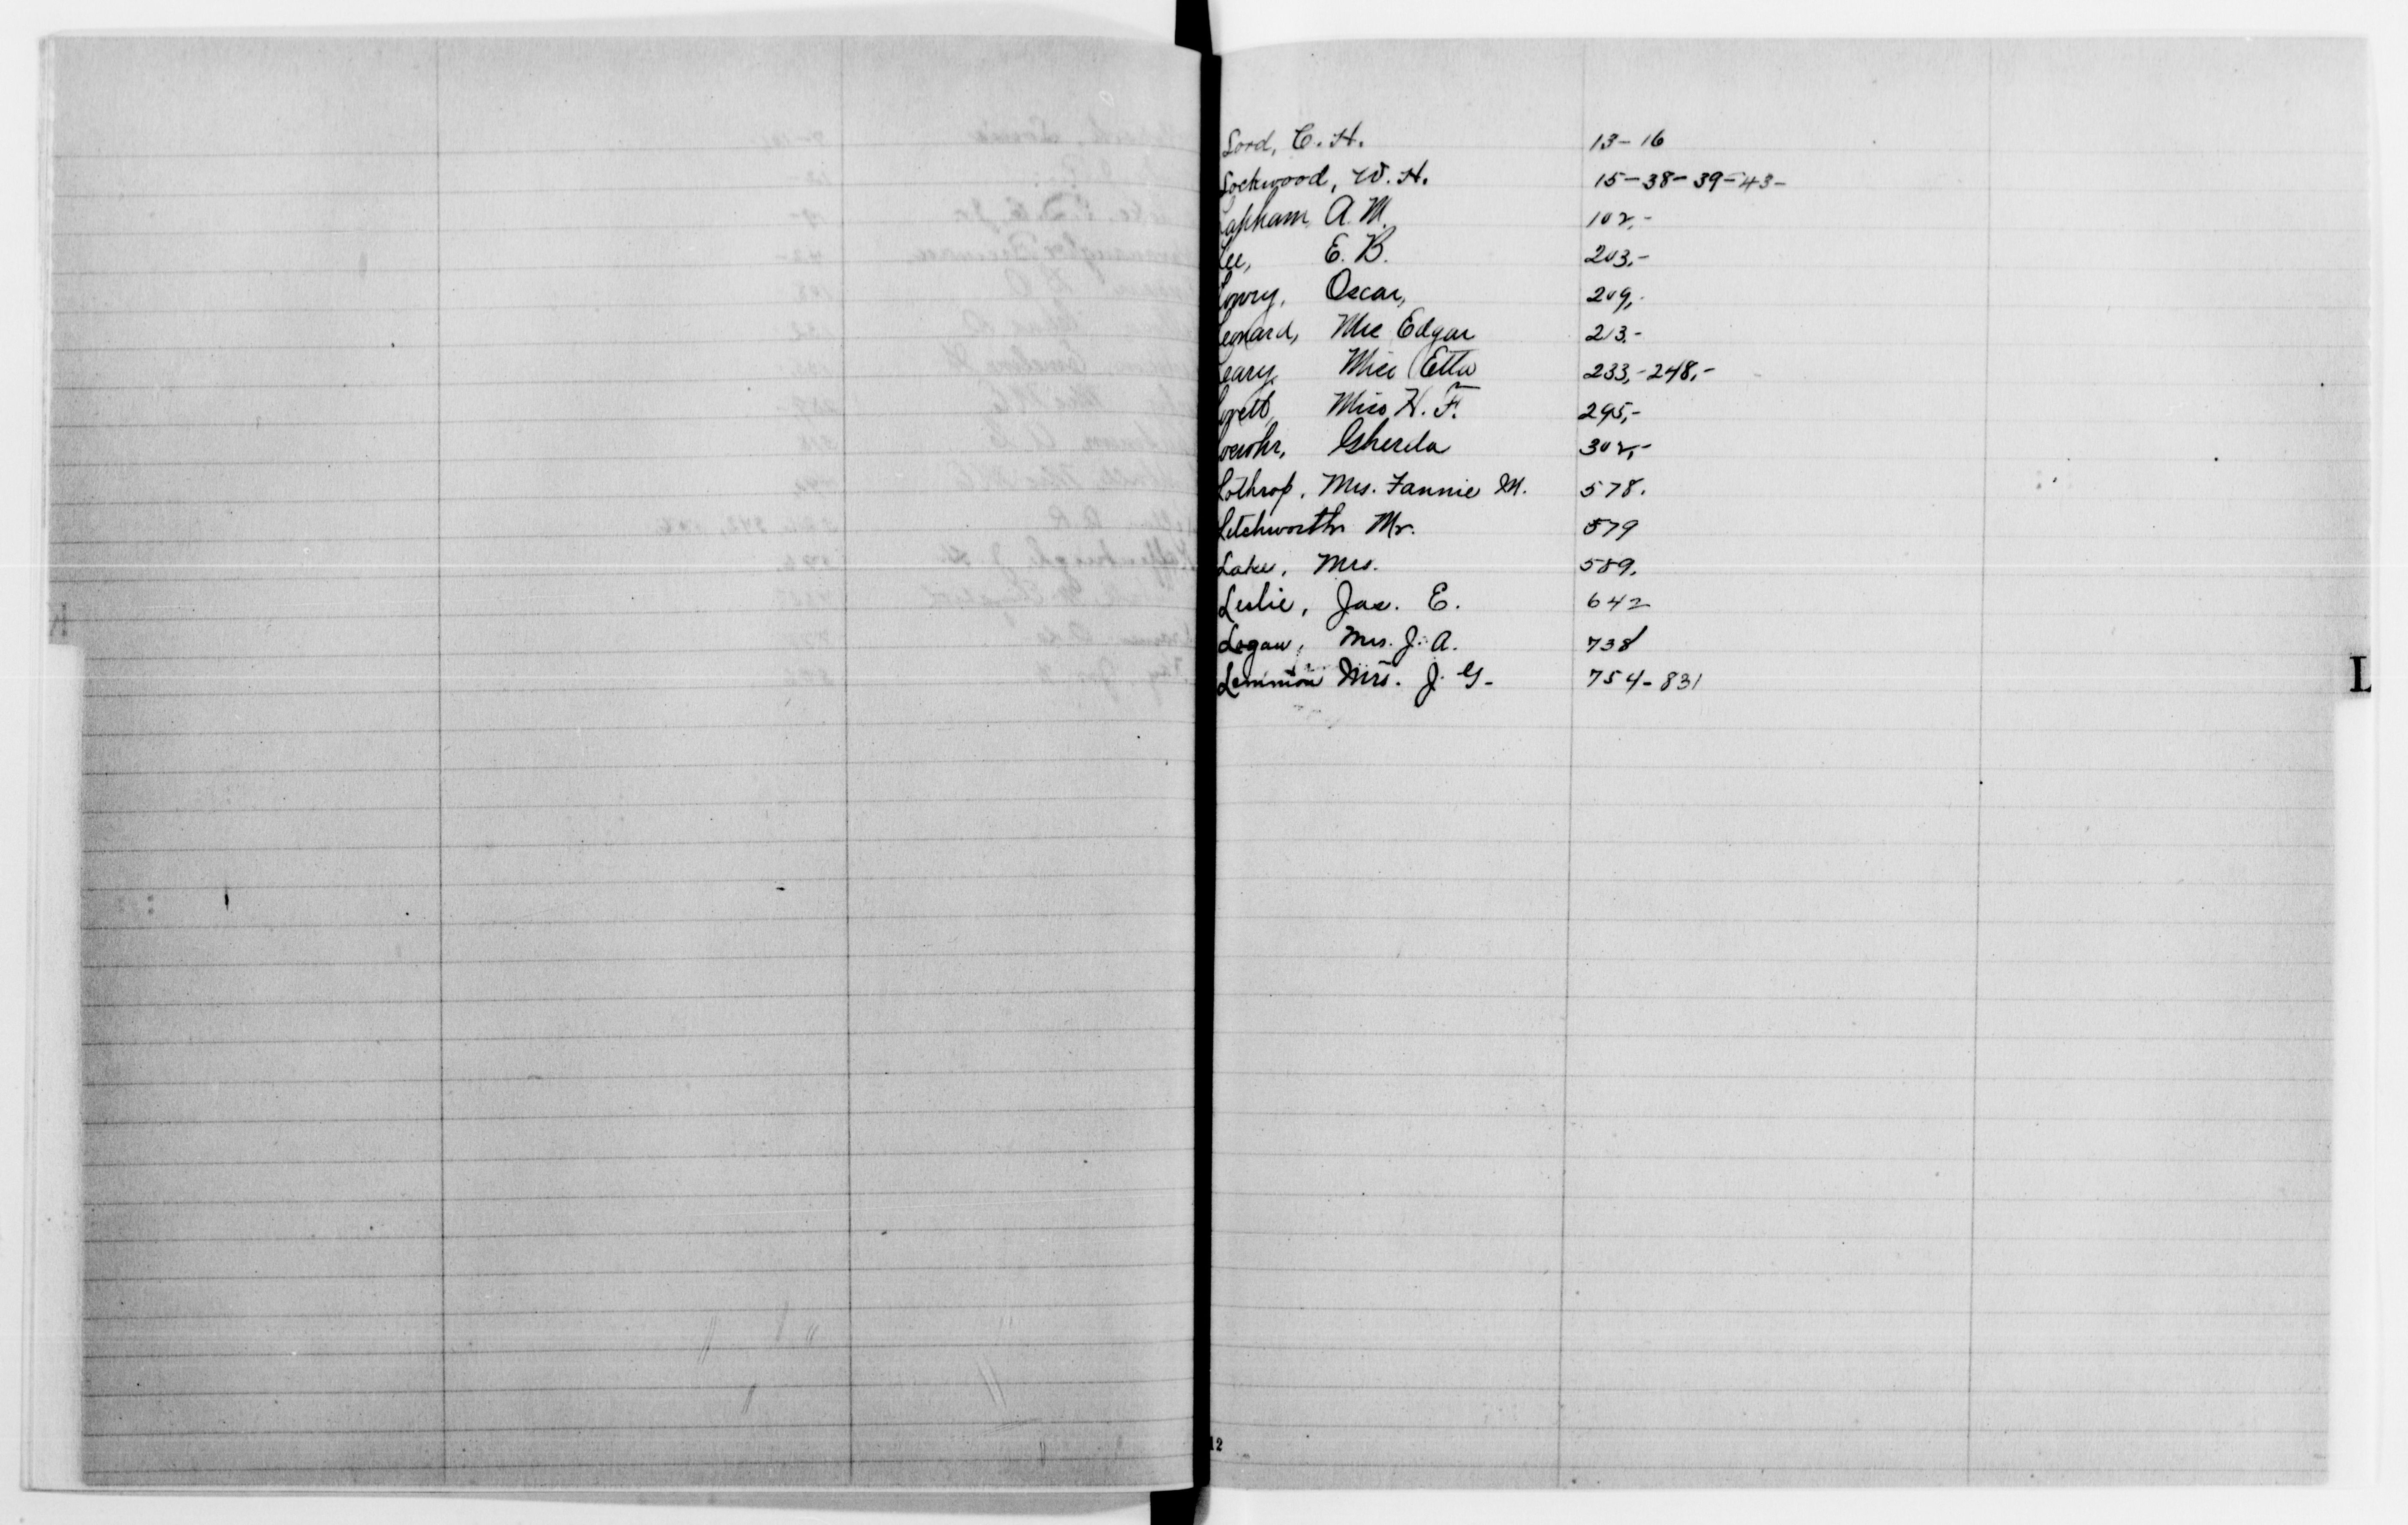 Lord, C. H. 13-16
Lockwood, W. H. 15-38-39-43-
Lapham, A. M. 102,-
Lee, E. B. 203,-
Lowry, Oscar, 209,-
Leonard, Mrs Edgar 213,-
Leary, Miss Etta 233,-248,-
Lovett, Miss H. F. 295,-
Gherda 302,-
Lothrop, Mrs. Fannie M. 578.
Letchworth Mr. 579
Lake, Mrs. 589.
Leslie, Jas. E. 642
Logan, Mrs. J. A. 738
L
Lemmon Mrs. J. G- 754-831
12